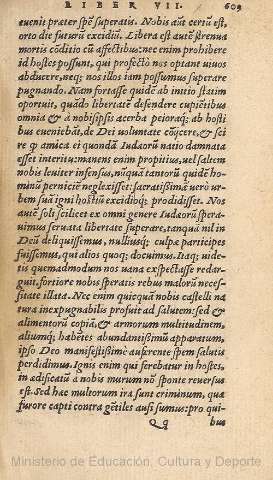 LIBER VII. 609
euenit præter spē superatis. Nobis aūt certū est,
orto die futurū excidiū. Libera est autē strenua
mortis cōditio cū affectibus: nec enim prohibere
id hostes possunt, qui profecto nos optant viuos
abducere, neq; nos illos iam possumus superare
pugnando. Nam fortasse quidē ab initio statim
oportuit, quādo libertatē defendere cupiētibus
omnia & à nobisipsis acerba peioraq́; ab hosti
bus eueniebāt, de Dei voluntate cōijcere, & sci
re q amica ei quondā Iudæorū natio damnata
esset interitu: manens enim propitius, vel saltem
nobis leuiter infensus, nūquā tantorū quidē ho-
minū perniciē neglexisset: sacratissimā uerò ur-
bem suā igni hostiūq́; excidio prodidisset. Nos
autē soli scilicet ex omni genere Iudæorū spera-
uimus seruata libertate superare, tanquā nil in
Deū deliquissemus, nulliusq́; culpæ participes
fuissemus, qui alios quoq; docuimus. Itaq; uide-
tis quemadmodum nos uana expectasse redar-
guit, fortiore nobis speratis rebus malorū neces-
sitate illata. Nec enim quicquā nobis castelli na
tura inexpugnabilis profuit ad salutem: sed &
alimentorū copiā, & armorum multitudinem,
aliumq́; habētes abundantissimū apparatum,
ipso Deo manifestissimè auferente spem salutis
perdidimus. Ignis enim qui ferebatur in hostes,
in ædificatū à nobis murum nō sponte reuersus
est. Sed hæc multorum ira sunt criminum, quæ
furore capti contra gētiles ausi sumus: pro qui-
Qq bus
Ministerio de Educación, Cultura y Deporte